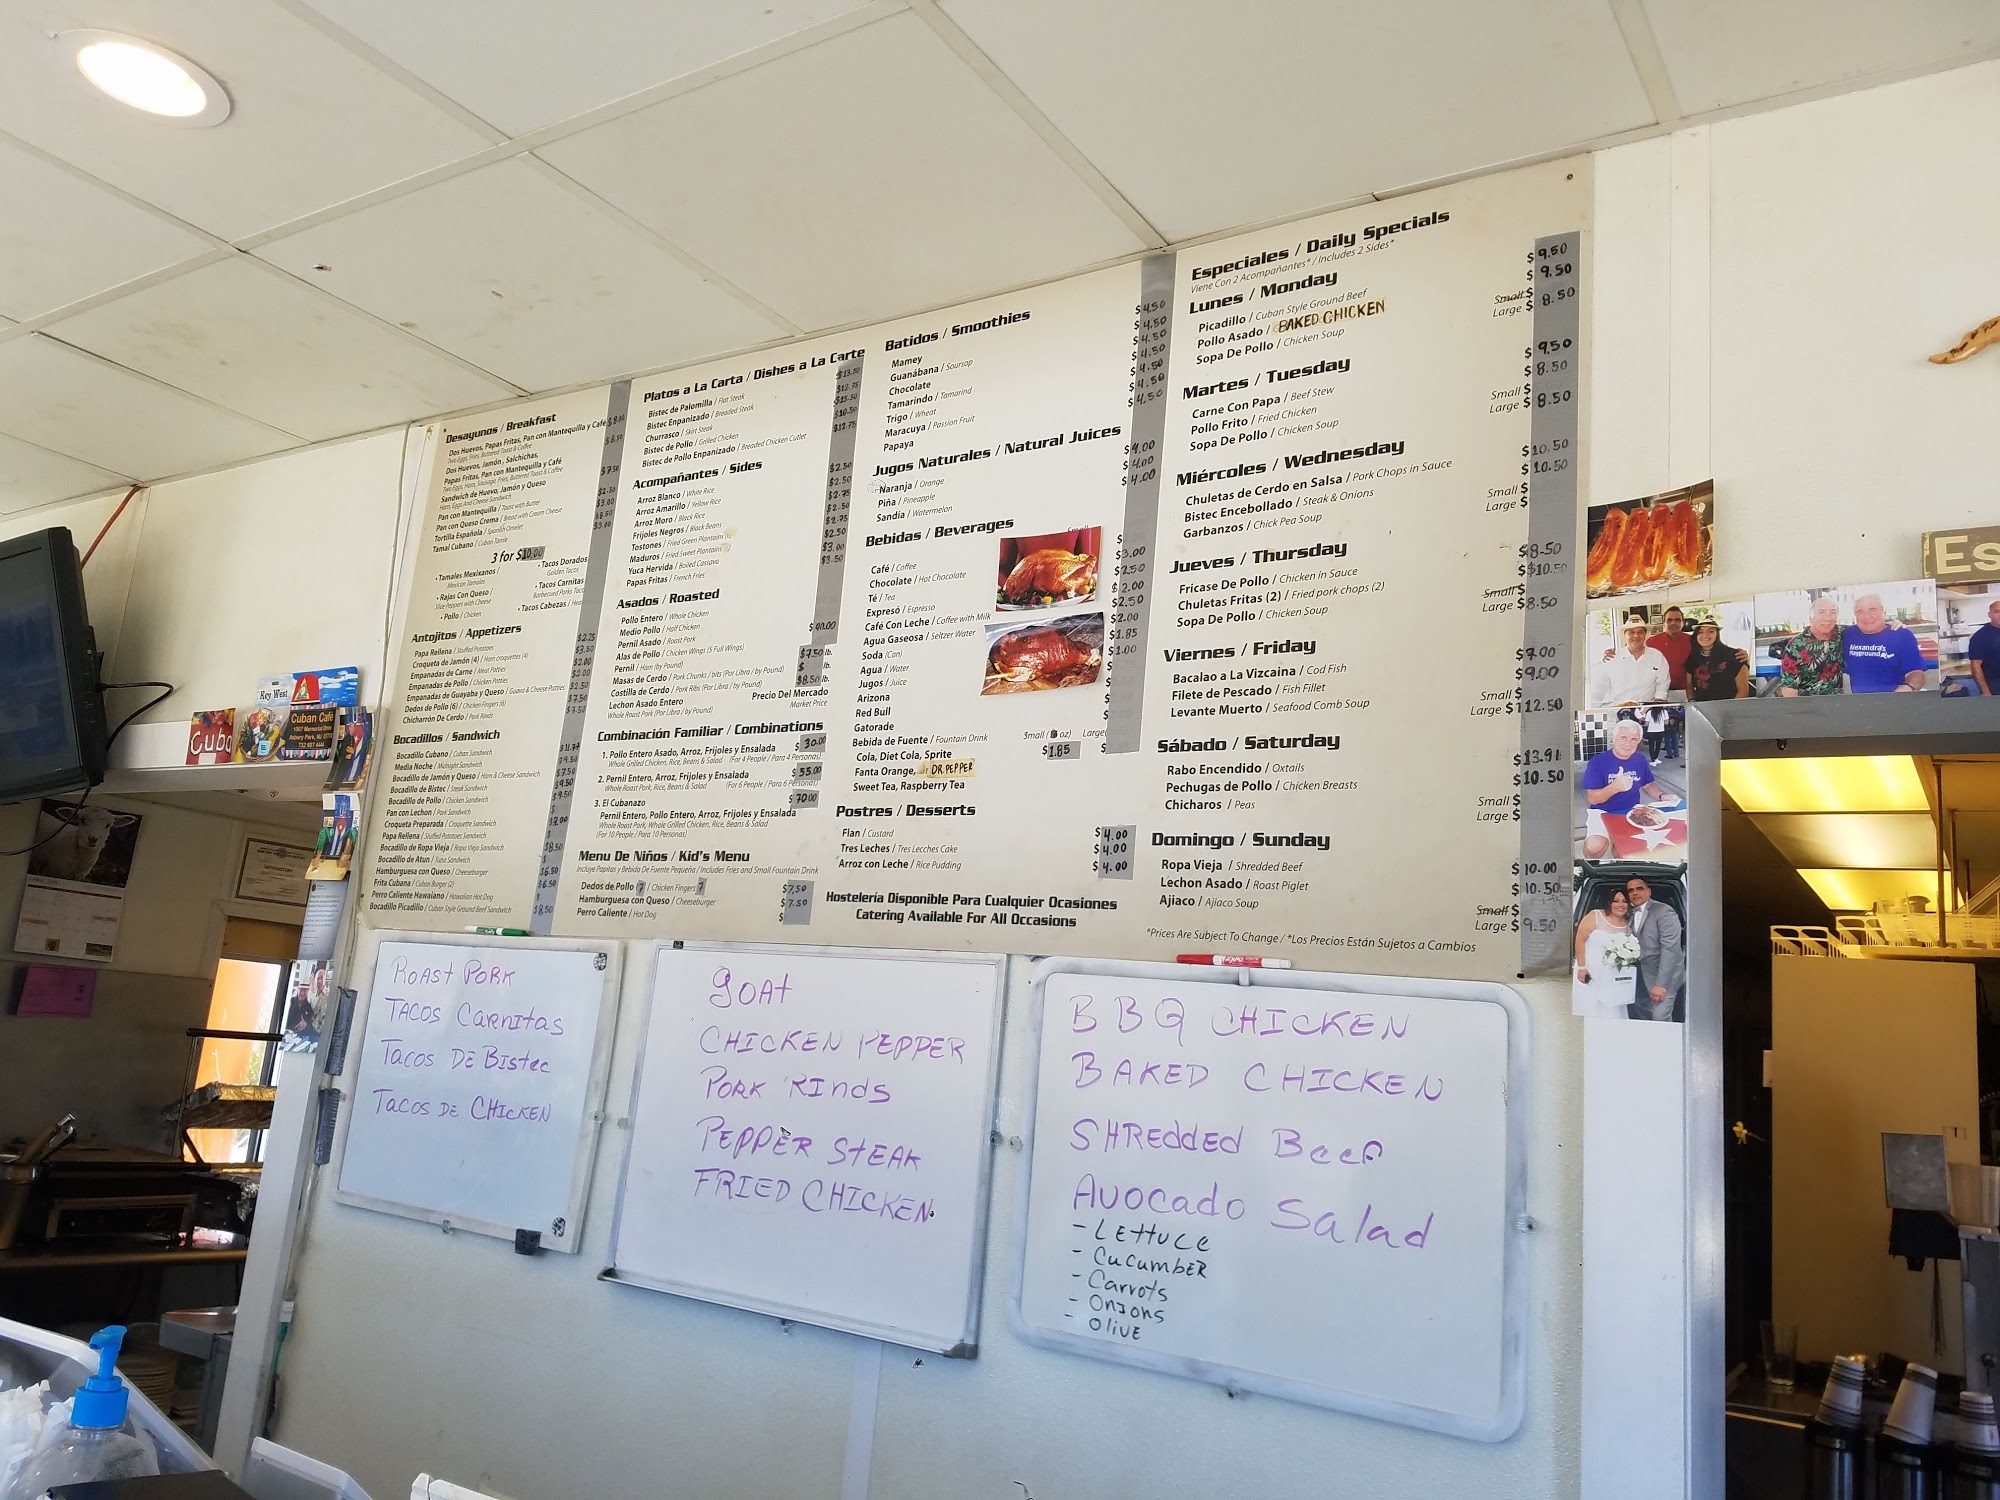 Desayunos / Breakfast
Dos Huevos, Papas Fritas, Pan con Mantequilla y Café
Two Eggs, Fries, Buttered Toast & Coffee
Dos Huevos, Jamón, Salchichas,
Papas Fritas, Pan con Mantequilla y Café
Two Eggs, Ham, Sausage, Fries, Buttered Toast & Coffee
Sandwich de Huevo, Jamón y Queso $7.50
Ham, Eggs And Cheese Sandwich
Pan con Mantequilla / Toast with Butter $2.50
Pan con Queso Crema / Bread with Cream Cheese $3.00
Tortilla Española / Spanish Omelet
Tamal Cubano / Cuban Tamle
3 for $10.00
• Tamales Mexixanos /
Mexican Tamales
• Rajas Con Queso /
Slice Peppers with Cheese
• Pollo / Chicken
• Tacos Dorados
Golden Tacos
• Tacos Carnitas
Barbecued Porks Taco
• Tacos Cabezas /
Antojitos / Appetizers
Papa Rellena / Stuffed Potatoes $2.25
Croqueta de Jamón (4) / Ham croquettes (4) $3.50
Empanadas de Carne / Meat Patties $2.00
Empanadas de Pollo / Chicken Patties $2.00
Empanadas de Guayaba y Queso / Guava & Cheese Patties $2.50
Dedos de Pollo (6) / Chicken Fingers (6) $7.50
Chicharrón De Cerdo / Pork Rinds $7.50
Bocadillos / Sandwich
Bocadillo Cubano / Cuban Sandwich
Media Noche / Midnight Sandwich
Bocadillo de Jamón y Queso / Ham & Cheese Sandwich
Bocadillo de Bistec / Steak Sandwich
Bocadillo de Pollo / Chicken Sandwich
Pan con Lechon / Pork Sandwich
Croqueta Preparada / Croquette Sandwich
Papa Rellena / Stuffed Potatoes Sandwich
Bocadillo de Ropa Vieja / Ropa Vieja Sandwich
Bocadillo de Atun / Tuna Sandwich
Hamburguesa con Queso / Cheeseburger
Frita Cubana / Cuban Burger (2)
Perro Caliente Hawaiano / Hawaiian Hot Dog
Bocadillo Picadillo / Cuban Style Ground Beef Sandwich $8.50
Platos a La Carta / Dishes a La Carte
Bistec de Palomilla / Flat Steak $13.50
Bistec Enpanizado / Breaded Steak $12.75
Churrasco / Skirt Steak $15.50
Bistec de Pollo / Grilled Chicken $10.50
Bistec de Pollo Enpanizado / Breaded Chicken Cutlet $12.75
Acompañantes / Sides
Arroz Blanco / White Rice $2.50
Arroz Amarillo / Yellow Rice $2.50
Arroz Moro / Black Rice $2.75
Frijoles Negros / Black Beans $2.50
Tostones / Fried Green Plantains $2.75
Maduros / Fried Sweet Plantains $2.50
Yuca Hervida / Boiled Cassava $3.00
Papas Fritas / French Fries $3.50
Asados / Roasted
Pollo Entero / Whole Chicken
Medio Pollo / Half Chicken
Pernil Asado / Roast Pork $90.00
Alas de Pollo / Chicken Wings (5 Full Wings)
Pernil / Ham (by Pound) $7.50 lb.
Masas de Cerdo / Pork Chunks / bits (Por Libra / by Pound) $ lb.
Costilla de Cerdo / Pork Ribs (Por Libra / by Pound) $8.50 lb.
Lechon Asado Entero Precio Del Mercado
Whole Roast Pork (Por Libra / by Pound) Market Price
Combinación Familiar / Combinations
1. Pollo Entero Asado, Arroz, Frijoles y Ensalada $30.00
Whole Grilled Chicken, Rice, Beans & Salad (For 4 People / Para 4 Personas)
2. Pernil Entero, Arroz, Frijoles y Ensalada $55.00
Whole Roast Pork, Rice, Beans & Salad (For 6 People / Para 6 Personas)
3. El Cubanazo $70.00
Pernil Entero, Pollo Entero, Arroz, Frijoles y Ensalada
Whole Roast Pork, Whole Grilled Chicken, Rice, Beans & Salad
(For 10 People / Para 10 Personas)
Menu De Niños / Kid's Menu
Incluye Papitas y Bebida De Fuente Pequeña / Includes Fries and Small Fountain Drink
Dedos de Pollo 7 / Chicken Fingers 7 $7.50
Hamburguesa con Queso / Cheeseburger $7.50
Perro Caliente / Hot Dog $
Batidos / Smoothies
Mamey $4.50
Guanábana / Soursop $4.50
Chocolate $4.50
Tamarindo / Tamarind $4.50
Trigo / Wheat $4.50
Maracuya / Passion Fruit $4.50
Papaya $4.50
Jugos Naturales / Natural Juices
Naranja / Orange $4.00
Piña / Pineapple $4.00
Sandía / Watermelon $4.00
Bebidas / Beverages
Small
Café / Coffee
Chocolate / Hot Chocolate $3.00
Té / Tea $2.50
Expresó / Espresso $2.00
Café Con Leche / Coffee with Milk $2.50
Agua Gaseosa / Seltzer Water $2.00
Soda (Can) $1.85
Agua / Water $1.00
Jugos / Juice
Arizona
Red Bull
Gatorade
Bebida de Fuente / Fountain Drink Small ( oz) Large
Cola, Diet Cola, Sprite $1.85 $
Fanta Orange, DR.PEPPER
Sweet Tea, Raspberry Tea
Postres / Desserts
Flan / Custard $4.00
Tres Leches / Tres Lecches Cake $4.00
Arroz con Leche / Rice Pudding $4.00
Hostelería Disponible Para Cualquier Ocasiones
Catering Available For All Occasions
Especiales / Daily Specials
Viene Con 2 Acompañantes* / Includes 2 Sides*
Lunes / Monday
Picadillo / Cuban Style Ground Beef $9.50
Pollo Asado / BAKED CHICKEN $9.50
Sopa De Pollo / Chicken Soup Small $
Large $8.50
Martes / Tuesday
Carne Con Papa / Beef Stew $9.50
Pollo Frito / Fried Chicken $8.50
Sopa De Pollo / Chicken Soup Small $
Large $8.50
Miércoles / Wednesday
Chuletas de Cerdo en Salsa / Pork Chops in Sauce $10.50
Bistec Encebollado / Steak & Onions $10.50
Garbanzos / Chick Pea Soup Small $
Large $
Jueves / Thursday
Fricase De Pollo / Chicken in Sauce $8.50
Chuletas Fritas (2) / Fried pork chops (2) $10.50
Sopa De Pollo / Chicken Soup Small $
Large $8.50
Viernes / Friday
Bacalao a La Vizcaina / Cod Fish $9.00
Filete de Pescado / Fish Fillet $9.00
Levante Muerto / Seafood Comb Soup Small $
Large $12.50
Sábado / Saturday
Rabo Encendido / Oxtails $13.91
Pechugas de Pollo / Chicken Breasts $10.50
Chicharos / Peas Small $
Large $
Domingo / Sunday
Ropa Vieja / Shredded Beef $10.00
Lechon Asado / Roast Piglet $10.50
Ajiaco / Ajiaco Soup Small $
Large $9.50
*Prices Are Subject To Change / *Los Precios Están Sujetos a Cambios
Key West
Cuba
Cuban Café
Asbury Park, NJ
Alexandra's
Playground
Es
ROAST PORK
TACOS CARNITAS
TACOS DE BISTEC
TACOS DE CHICKEN
GOAT
CHICKEN PEPPER
PORK RINDS
PEPPER STEAK
FRIED CHICKEN
EXPO
BBQ CHICKEN
BAKED CHICKEN
SHREDDED BEEF
AVOCADO SALAD
- LETTUCE
- CUCUMBER
- CARROTS
- ONIONS
- OLIVE